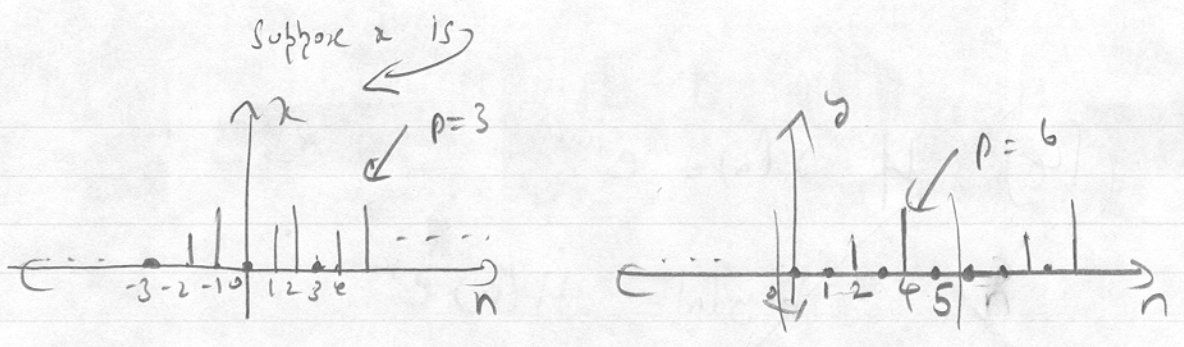 Suppose x is
x
p=3
-3 -2 -1 0 1 2 3 4
n
y
p = 6
0 1 2 4 5
n